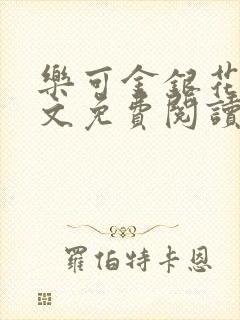 樂可金銀花
文免費閱讀
羅伯特卡恩